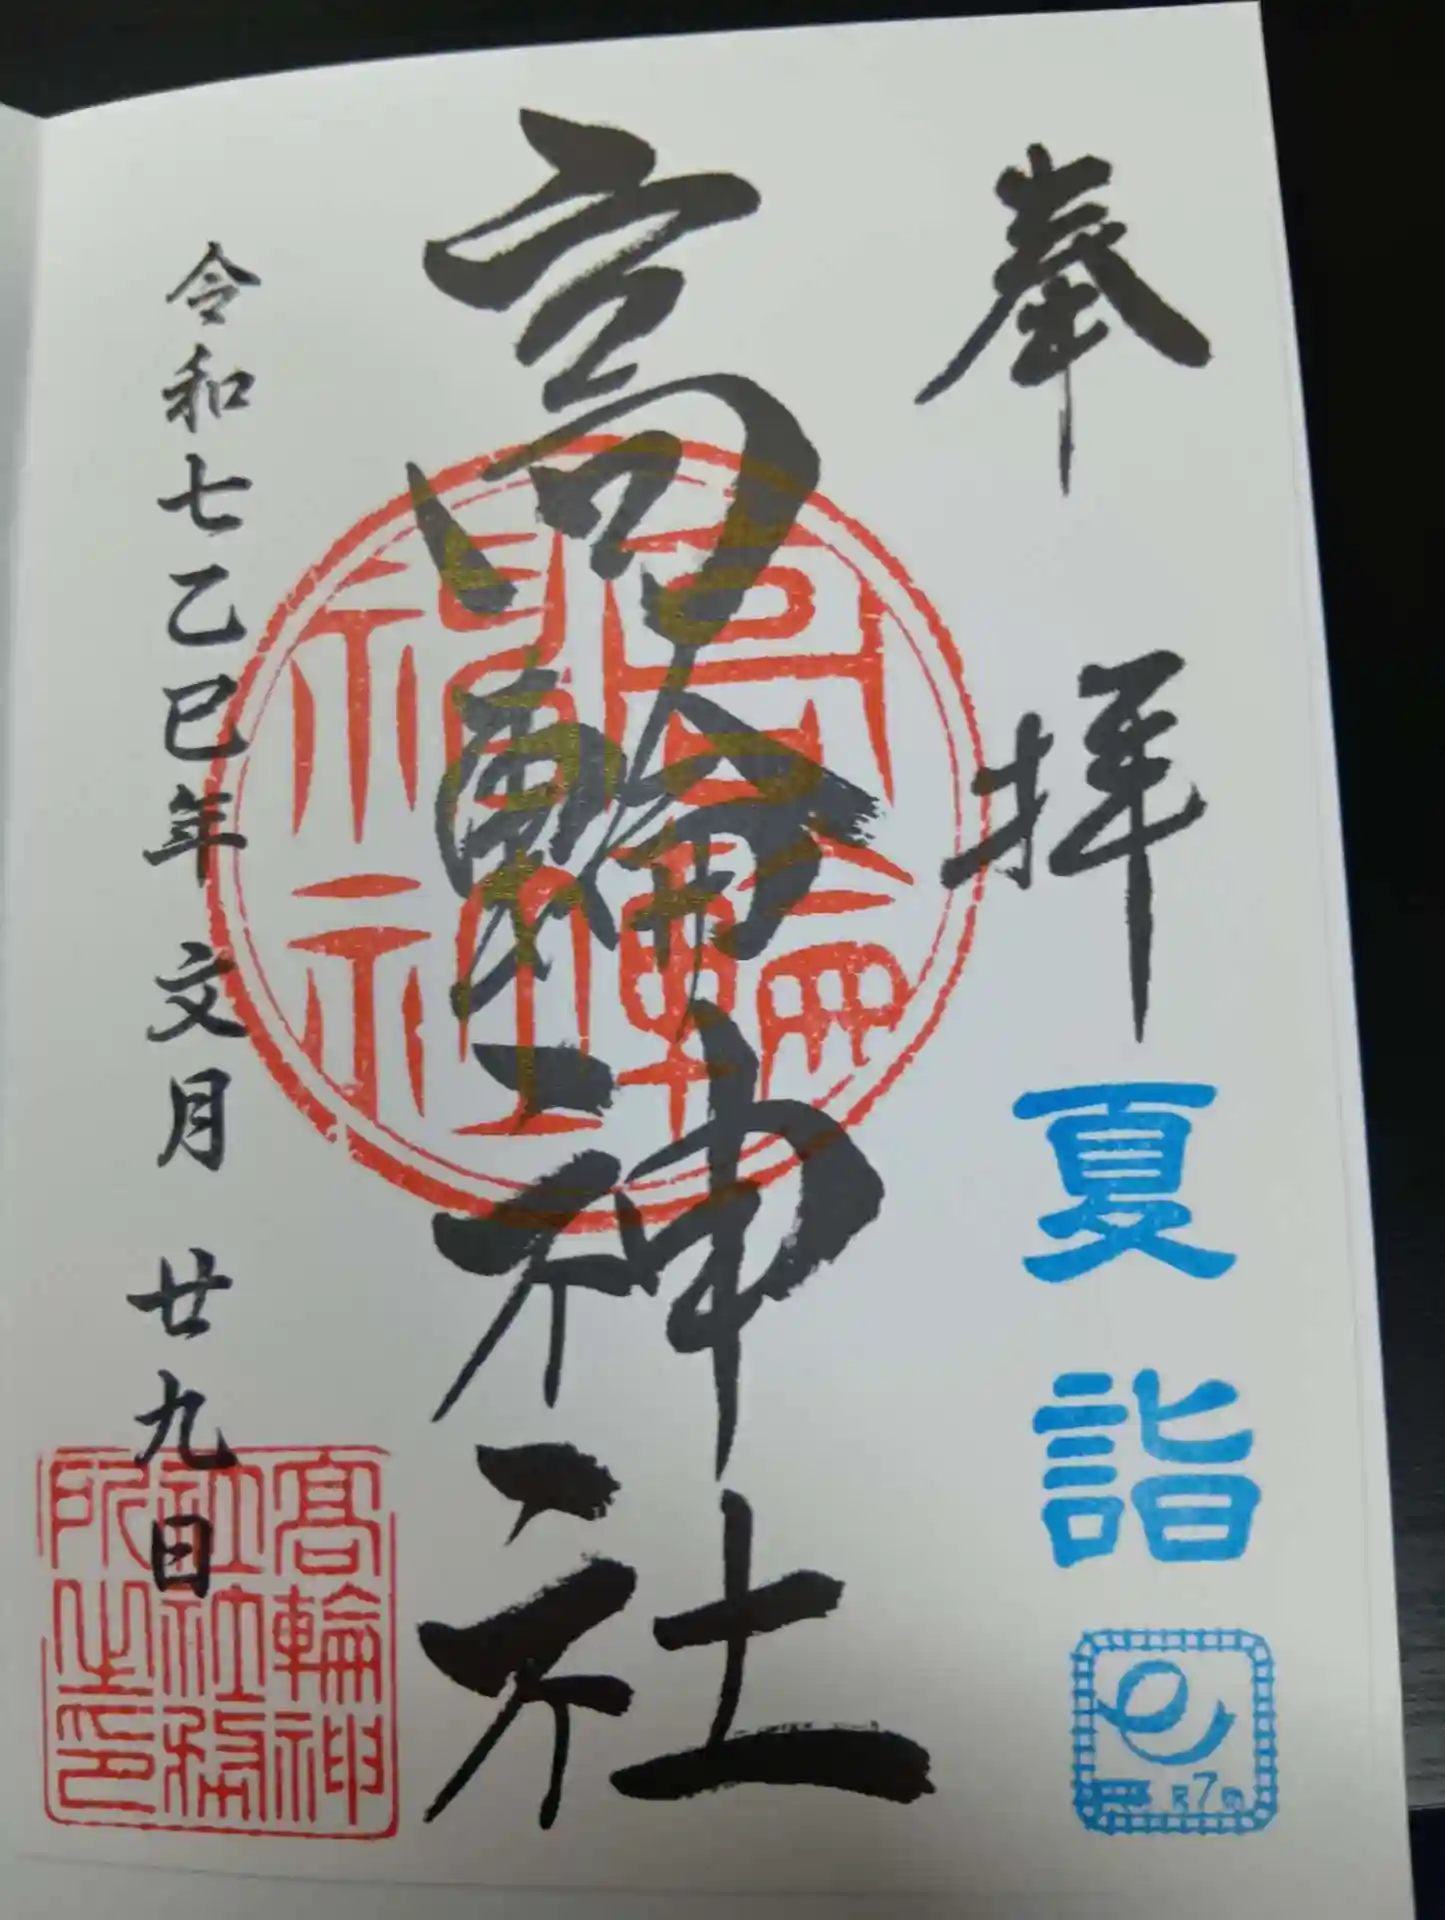 奉拝
夏詣
R7
高輪神社
高輪神社
令和七乙巳年 文月 廿九日
高輪神
社社務
所之印